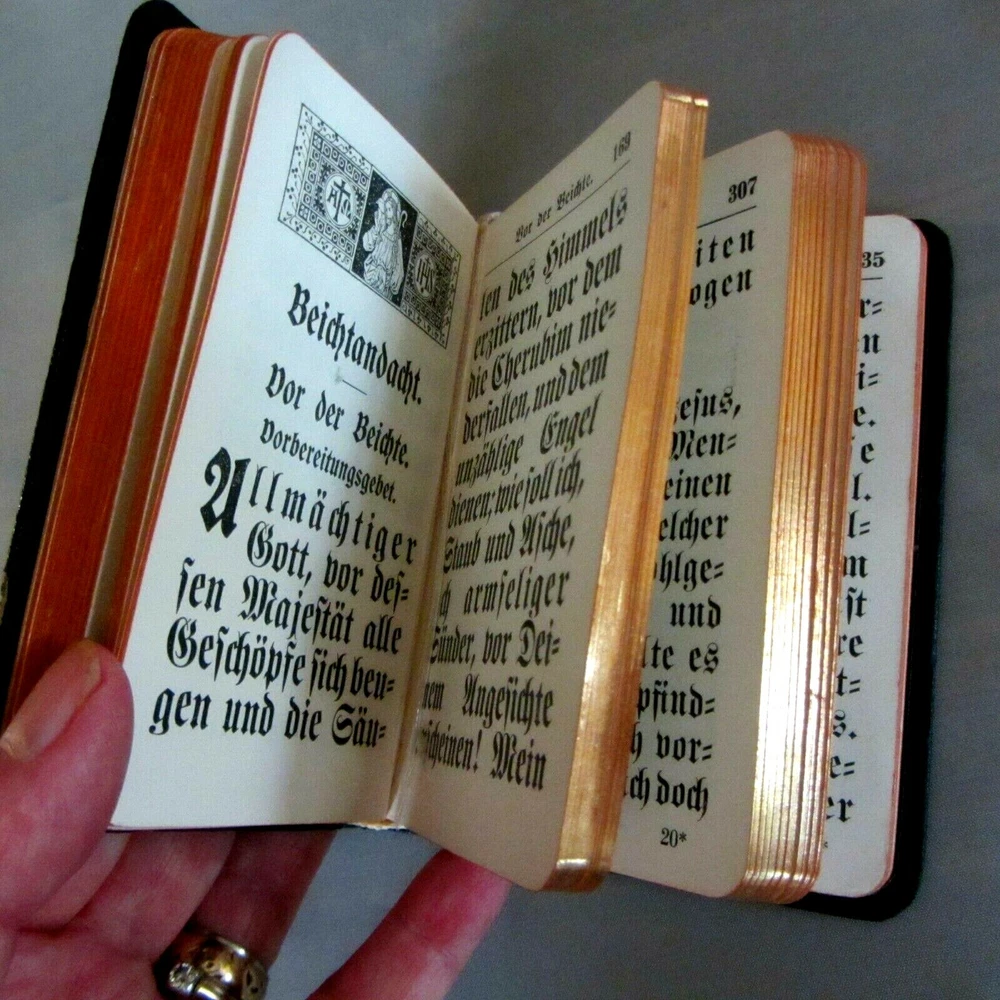 Beichtandacht.
Vor der Beichte.
Vorbereitungsgebet.
Allmächtiger
Gott, vor des-
sen Majestät alle
Geschöpfe sich beu-
gen und die Säu-
Vor der Beichte. 169
len des Himmels
erzittern, vor dem
die Cherubim nie-
derfallen, und dem
unzählige Engel
dienen; wie soll ich,
Staub und Asche,
ich armseliger
Sünder, vor Dei-
nem Angesichte
erscheinen! Mein
307
iten
ogen
Jesus,
Men-
einen
elcher
ohlge-
und
lte es
pfind-
h vor-
ich doch
20*
35
r-
n
i-
e.
e
l.
l-
m
st
re
t-
s.
e-
er